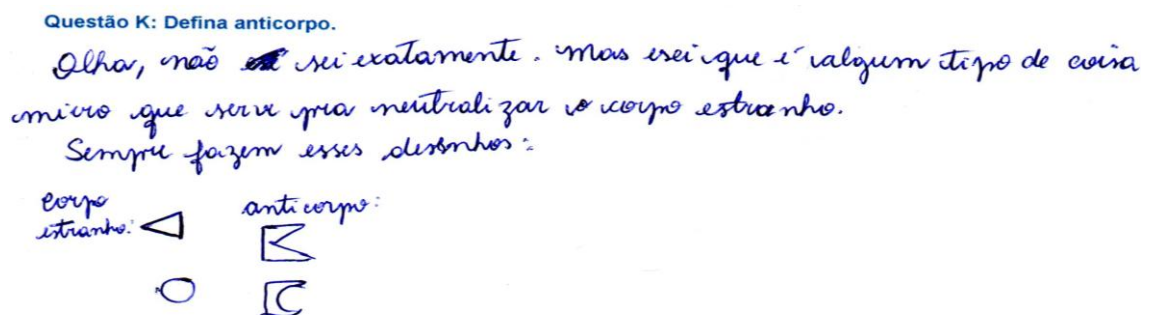 Questão K: Defina anticorpo.
Olha, não sei exatamente. Mas sei que é algum tipo de coisa
micro que serve pra neutralizar o corpo estranho.
Sempre fazem esses desenhos:
corpo estranho:
anticorpo: